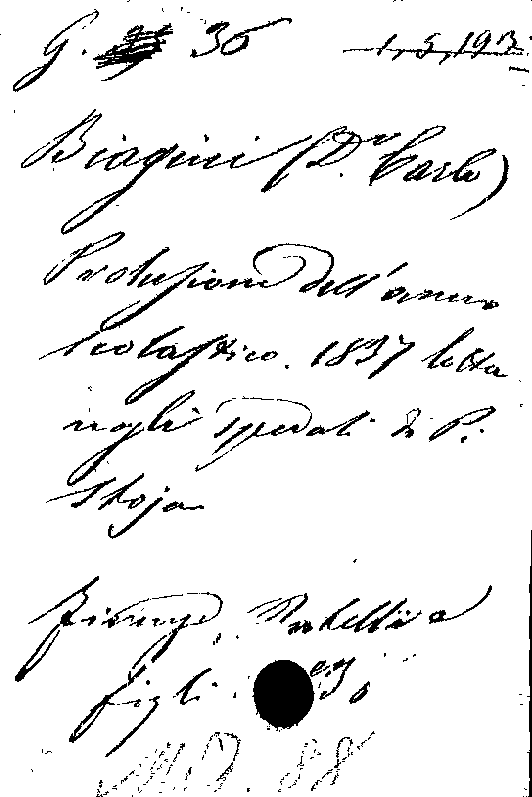 G. 36 1,5,193
Biagini (Dr. Carlo)
Prolusione dell'anno
scolastico. 1837 letta
negli spedali di Pi:
stoja
Firenze, Pratelli e
figli.
M.B. 88